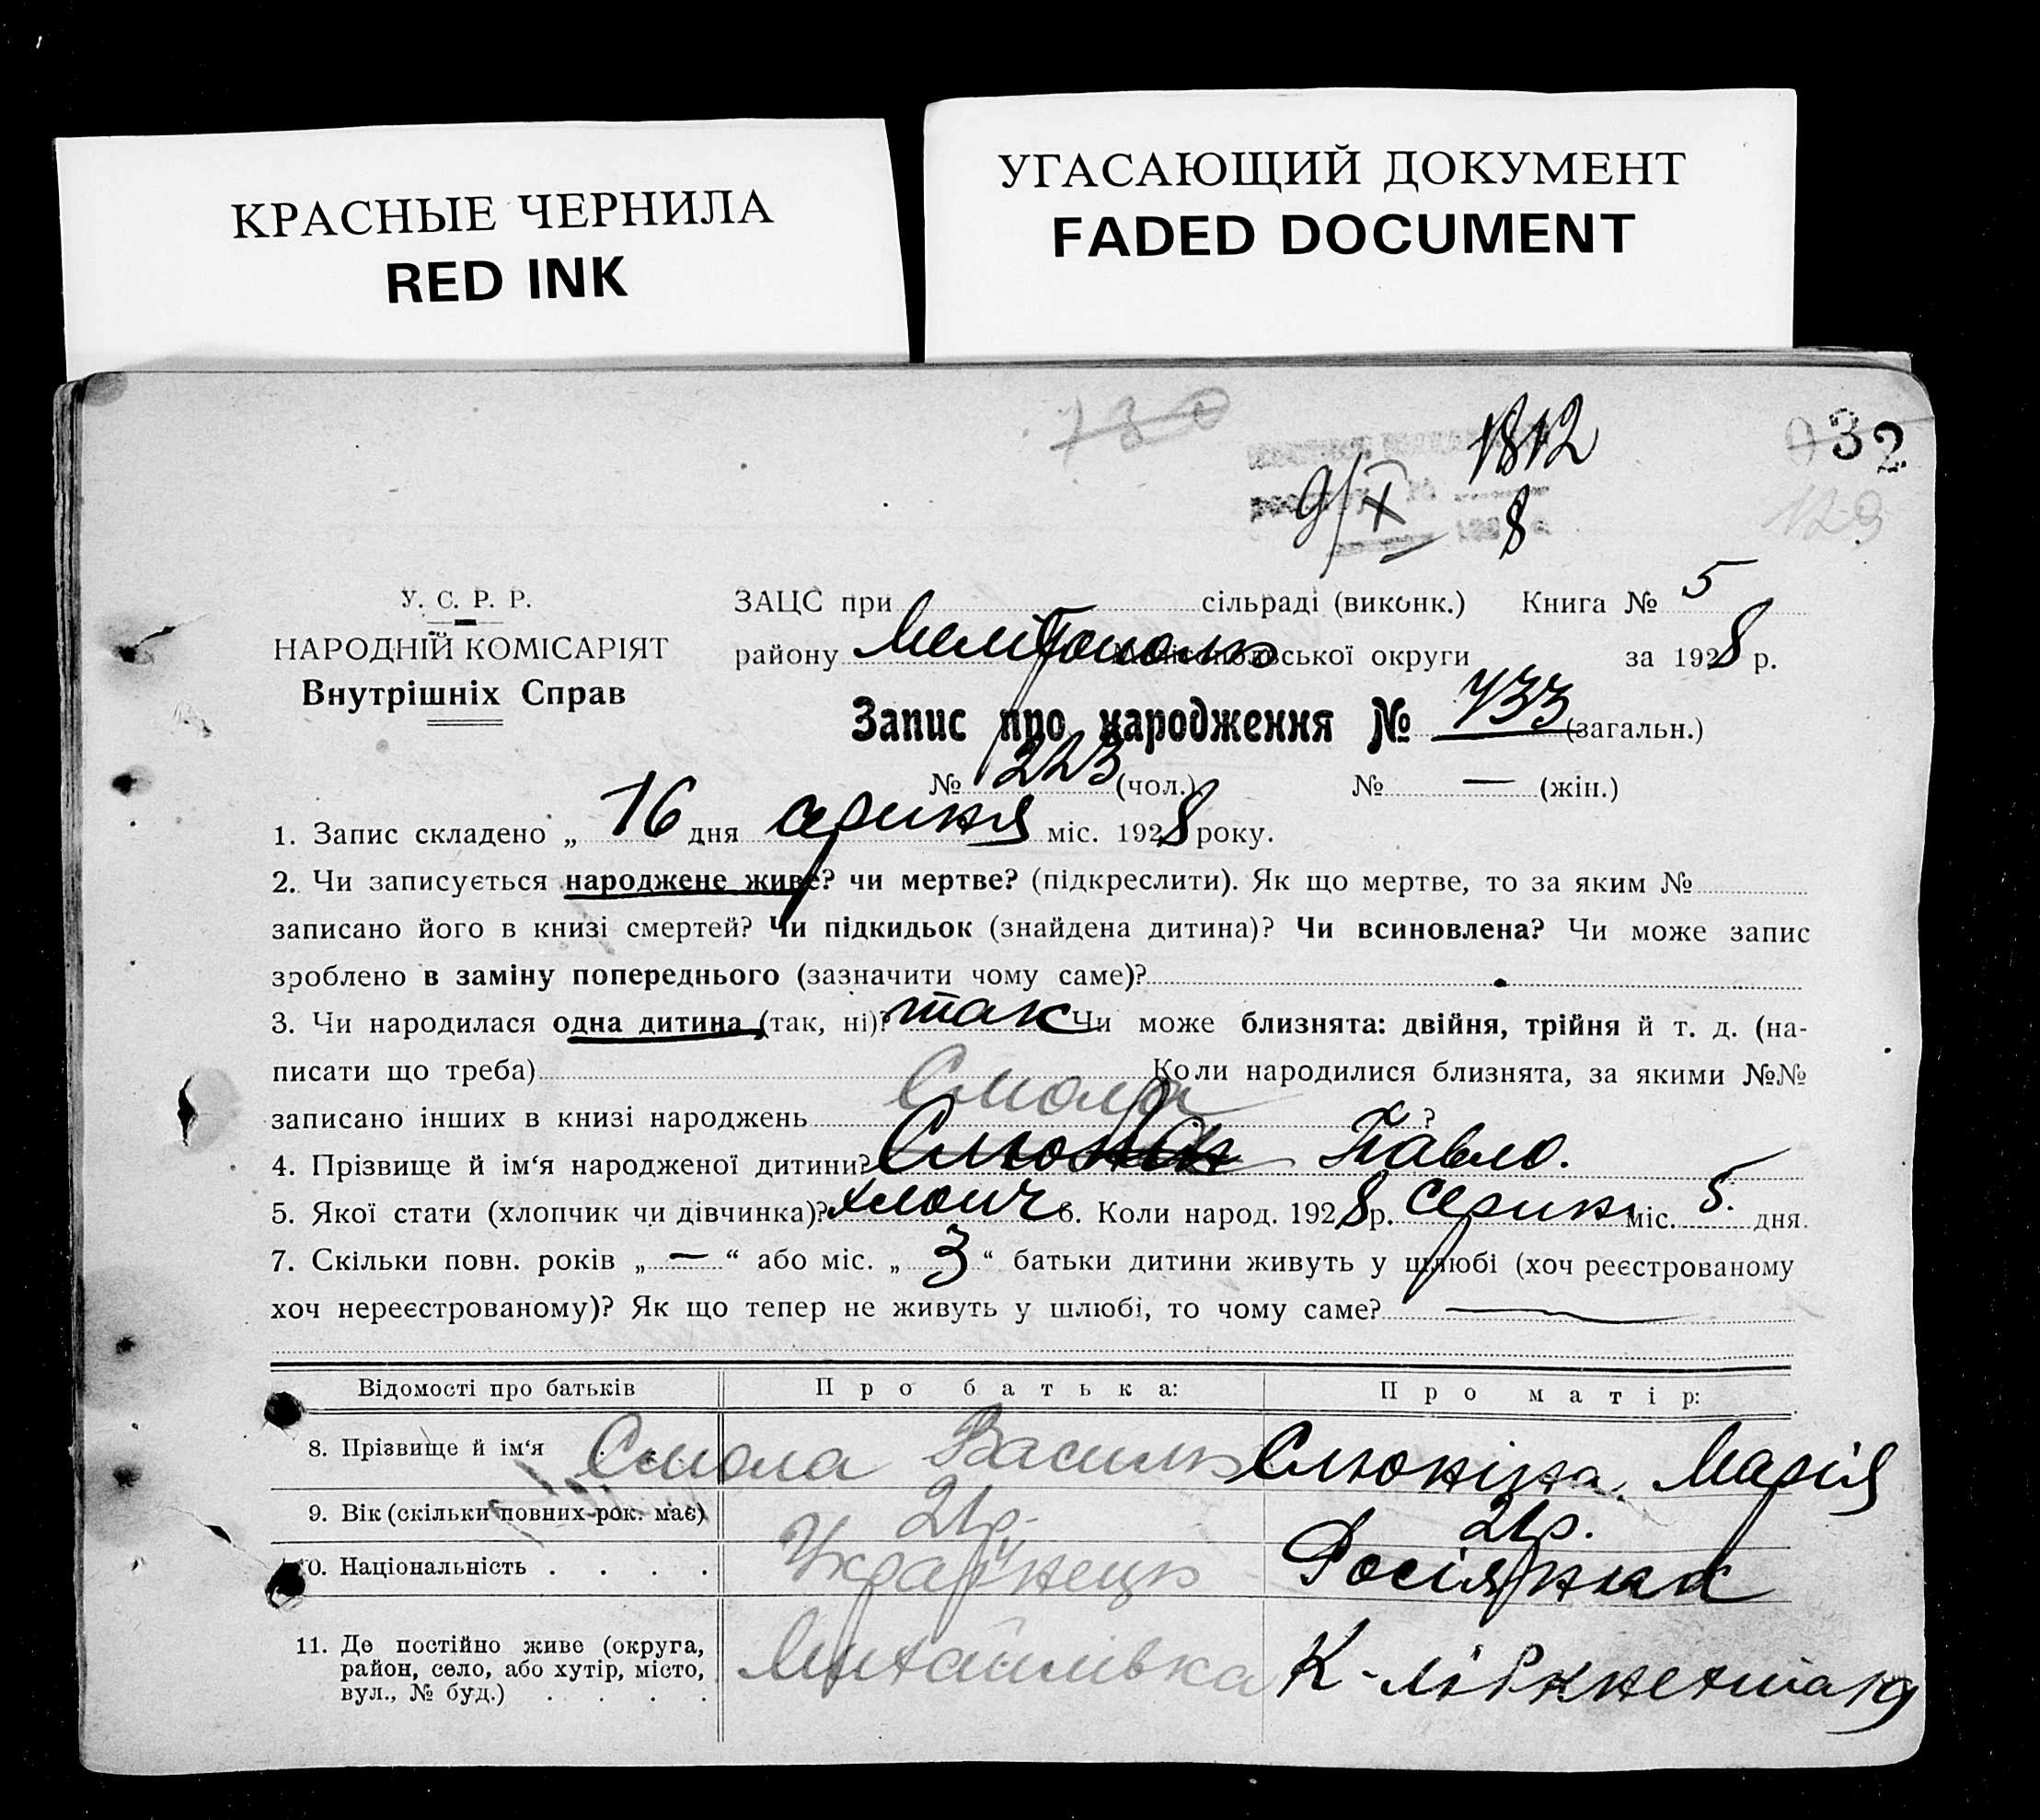 КРАСНЫЕ ЧЕРНИЛА
RED INK
УГАСАЮЩИЙ ДОКУМЕНТ
FADED DOCUMENT
730
1812
032
9/X
8
129
У. С. Р. Р.
НАРОДНІЙ КОМІСАРІЯТ
Внутрішніх Справ
ЗАЦС при сільраді (виконк.) Книга № 5
району Мелітополь округи за 1928 р.
Запис про народження № 733 (загальн.)
№ 223 (чол.) № — (жін.)
1. Запис складено „ 16 дня серпня міс. 1928 року.
2. Чи записується народжене живе? чи мертве? (підкреслити). Як що мертве, то за яким №
записано його в книзі смертей? Чи підкидьок (знайдена дитина)? Чи всиновлена? Чи може запис
зроблено в заміну попереднього (зазначити чому саме)?
3. Чи народилася одна дитина (так, ні)? так Чи може близнята: двійня, трійня й т. д. (на-
писати що треба) Коли народилися близнята, за якими №№
записано інших в книзі народжень ?
Смола
4. Прізвище й ім‘я народженої дитини? Павло.
5. Якої стати (хлопчик чи дівчинка)? хлопч 6. Коли народ. 1928 р. серпня міс. 5. дня.
7. Скільки повн. років „ — “ або міс. „ 3 “ батьки дитини живуть у шлюбі (хоч реєстрованому
хоч нереєстрованому)? Як що тепер не живуть у шлюбі, то чому саме? —
Відомості про батьків Про батька: Про матір:
8. Прізвище й ім‘я Смола Василь Слюніна Марія
9. Вік (скільки повних рок. має) 21р. 21р.
10. Національність . . . . Українець Росіянка
11. Де постійно живе (округа,
район, село, або хутір, місто,
вул., № буд.) . . . . Михайлівка К-Лібкнехта 19